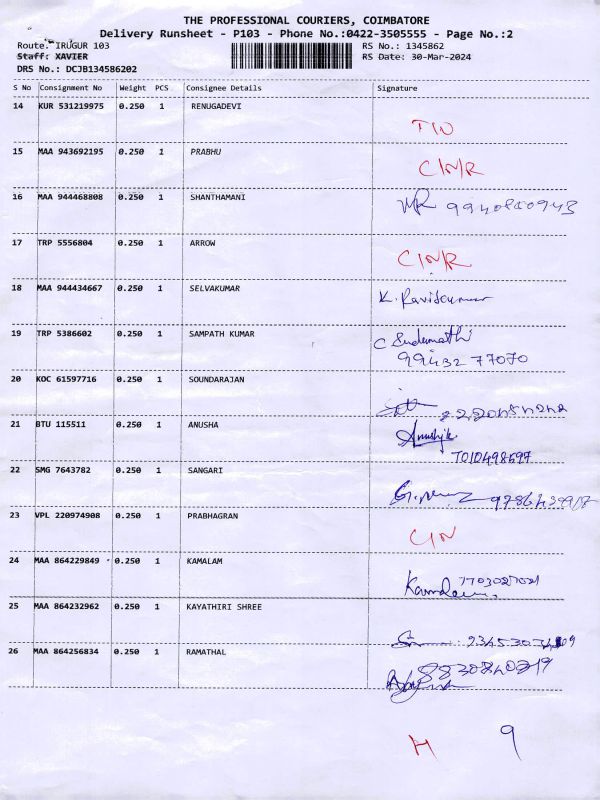 THE PROFESSIONAL COURIERS, COIMBATORE
Delivery Runsheet - P103 - Phone No.:0422-3505555 - Page No.:2
Route: IRUGUR 103 RS No.: 1345862
Staff: XAVIER RS Date: 30-Mar-2024
DRS No.: DCJB134586202
S No Consignment No Weight PCS Consignee Details Signature
14 KUR 531219975 0.250 1 RENUGADEVI
15 MAA 943692195 0.250 1 PRABHU C/N/R
16 MAA 944468808 0.250 1 SHANTHAMANI
17 TRP 5556804 0.250 1 ARROW C/N/R
18 MAA 944434667 0.250 1 SELVAKUMAR K. Ravikumar
19 TRP 5386602 0.250 1 SAMPATH KUMAR C Sudumathi
99432 77070
20 KOC 61597716 0.250 1 SOUNDARAJAN
21 BTU 115511 0.250 1 ANUSHA
7010498697
22 SMG 7643782 0.250 1 SANGARI
23 VPL 220974908 0.250 1 PRABHAGRAN C/N
24 MAA 864229849 0.250 1 KAMALAM
25 MAA 864232962 0.250 1 KAYATHIRI SHREE
26 MAA 864256834 0.250 1 RAMATHAL
9